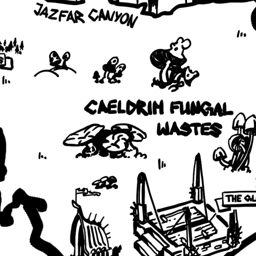 JAZFAR CANYON
CAELDRIM FUNGAL
WASTES
THE